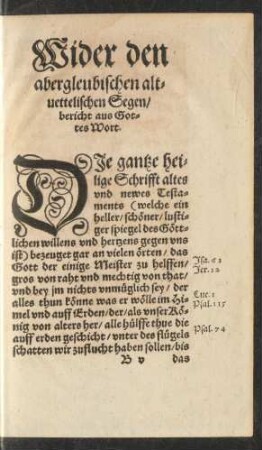 Wider den
abergleubischen alt-
uettelischen Segen/
bericht aus Got-
tes Wort.
DIe gantze hei-
lige Schrifft altes
vnd newes Testa-
ments (welche ein
heller/schöner/lusti-
ger spiegel des Gött-
lichen willens vnd hertzens gegen vns
ist) bezeuget gar an vielen örten/ das
Gott der einige Meister zu helffen/
gros von raht vnd mechtig von that/
vnd bey jm nichts vnmüglich sey/ der
alles thun könne was er wölle im Hi-
mel vnd auff Erden/der/als vnser Kö-
nig von alters her/ alle hülffe thue die
auff erden geschicht/ vnter des flügels
schatten wir zuflucht haben sollen/bis
B v das
Jsa. 61
Jer. 32
Luc. 1
Psal. 115
Psal. 74